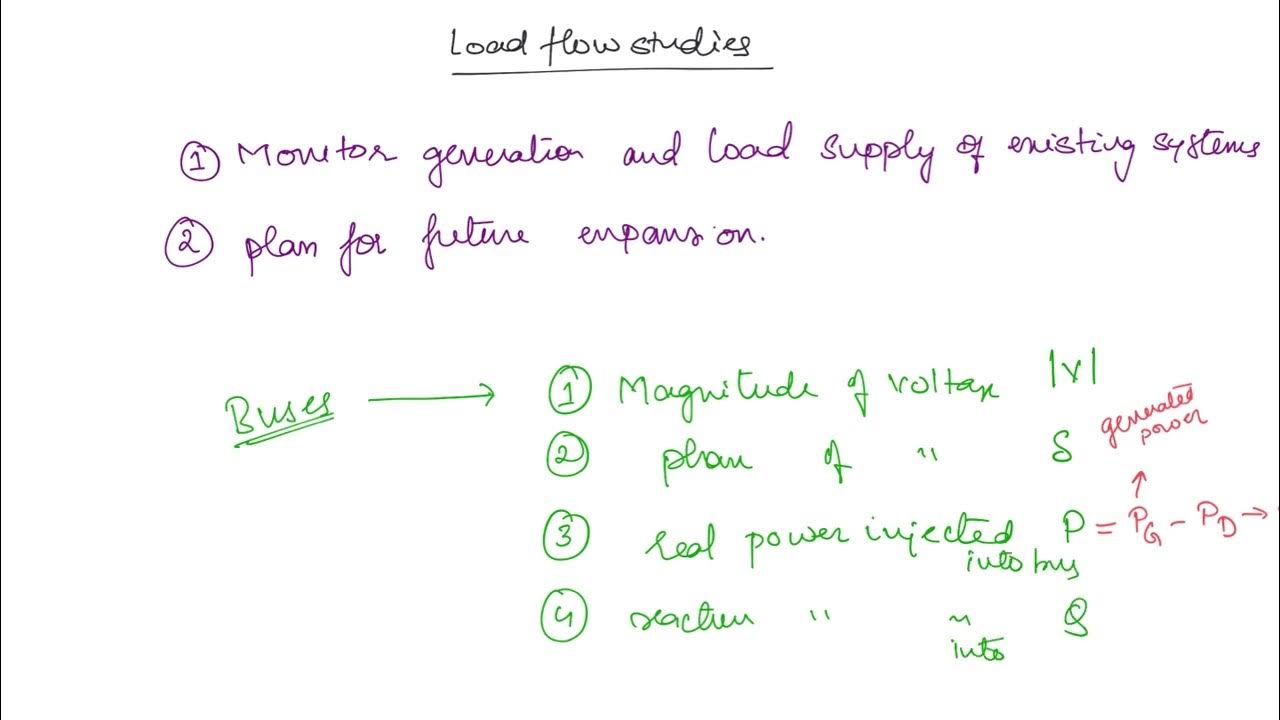 Load flow studies
① Monitor generation and load supply of existing systems
② plan for future expansion.
Buses → ① Magnitude of voltage |V|
② phase of " δ
generated power
↑
③ real power injected into bus P = P_G - P_D →
④ reactive " " into Q